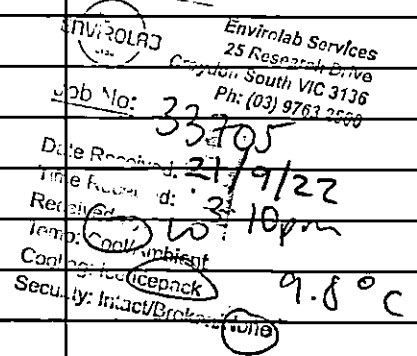 ENVIROLAB
Envirolab Services
25 Research Drive
Croydon South VIC 3136
Ph: (03) 9763 2500
Job No: 33705
Date Received: 21/9/22
Time Received: 3:10pm
Received
Temp: Cool/Ambient 9.8°C
Cooling: Ice/Icepack
Security: Intact/Broken/None